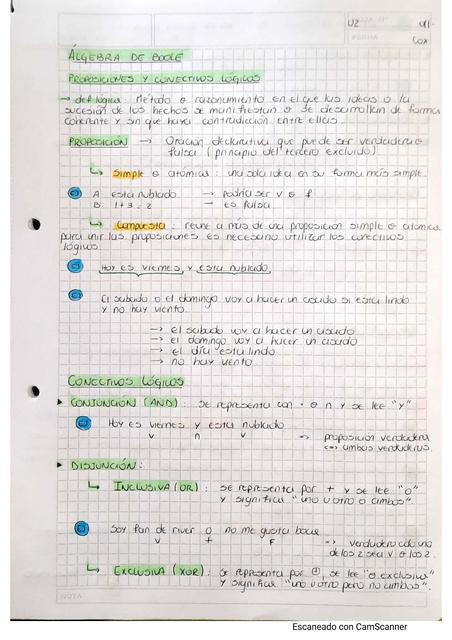 U2
ÁLGEBRA DE BOOLE
PROPOSICIONES Y CONECTIVOS LÓGICOS
→ def lógica: Método o razonamiento en el que las ideas o la
sucesión de los hechos se manifiestan o se desarrollan de forma
coherente y sin que haya contradicción entre ellas.
PROPOSICIÓN → Oración declarativa que puede ser verdadera o
falsa (principio del tercero excluido).
↳ Simple o atómicas: una sola idea en su forma más simple.
A. está nublado → podría ser v o f
B. 1+3=2 → es falsa
↳ Compuesta: reúne a más de una proposición simple o atómica
para unir las proposiciones es necesario utilizar los conectivos
lógicos.
Hoy es viernes y está nublado
El sábado o el domingo voy a hacer un asado si está lindo
y no hay viento.
→ el sábado voy a hacer un asado
→ el domingo voy a hacer un asado
→ el día está lindo
→ no hay viento
CONECTIVOS LÓGICOS
▸ CONJUNCIÓN (AND): se representa con · o ∩ y se lee "y"
Hoy es viernes y está nublado
v ∩ v => proposición verdadera
<=> ambas verdaderas
▸ DISJUNCIÓN:
↳ INCLUSIVA (OR): se representa por + y se lee "o"
y significa "uno u otro o ambos".
Soy fan de river o no me gusta boca
v + F => verdadero cdo uno
de los 2 sea v o los 2.
↳ EXCLUSIVA (XOR): se representa por ⊕, se lee "o exclusiva"
y significa "uno u otro pero no ambos".
NOTA
Escaneado con CamScanner